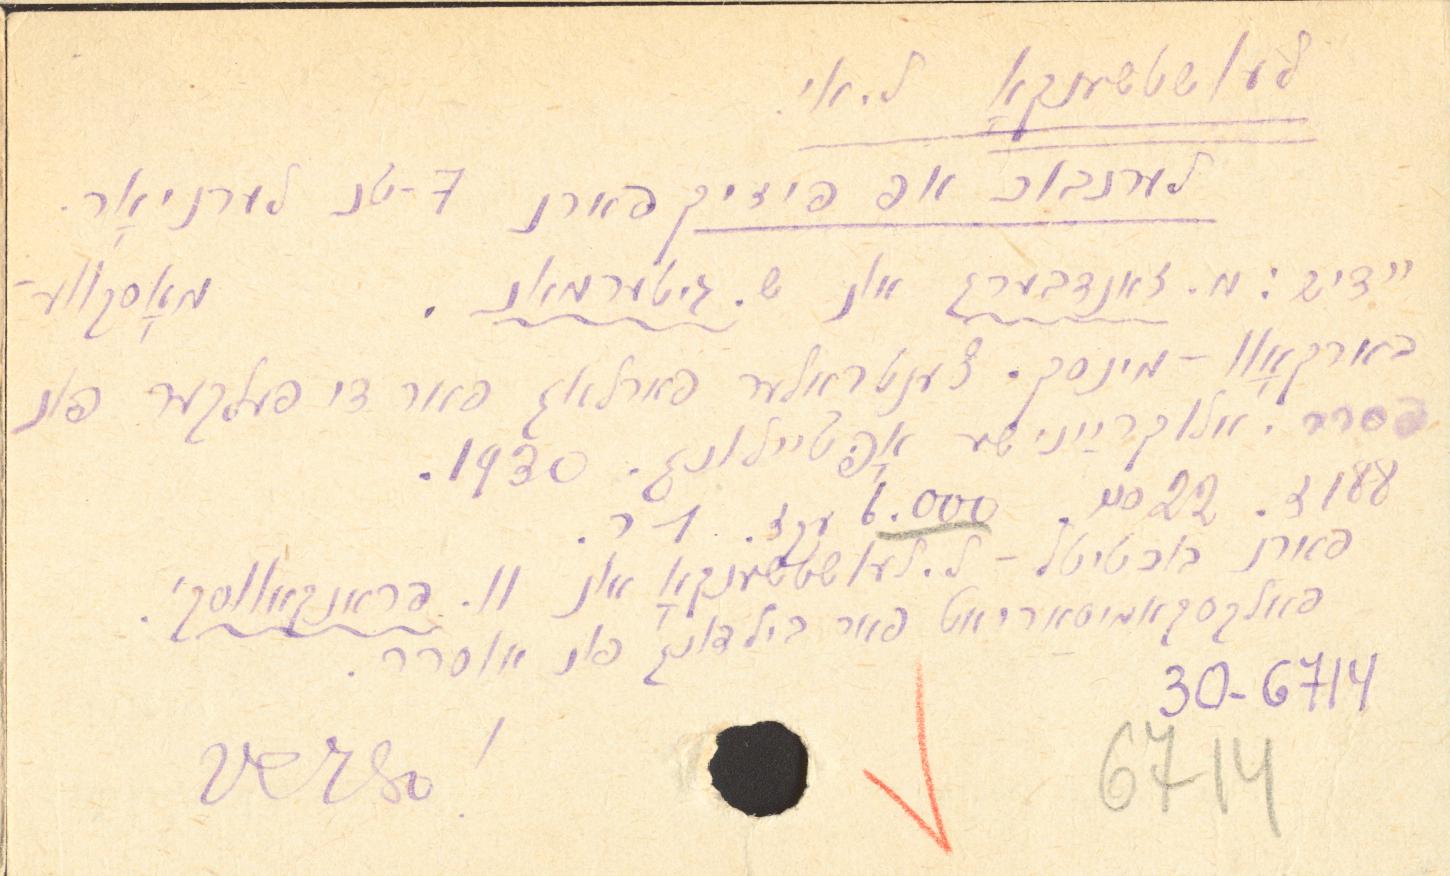 לעושטשענקאָ ל. אי.
לערנבוכ אפ פיזיק פארן 7-טנ לערניאָר.
יידיש: מ. זאנדבערג און ש. גיטערמאנ. מאָסקווע-
כארקאָוו-מינסק. צענטראלער פארלאג פאר די פעלקער פונ
פסרר. אוקריַינישע אָפטיילונג. 1930.
188 ז. 22 סמ. 6.000 עקז. 1 ר.
פארן בוכטיטל - ל. לעושטשענקאָ און וו. פראנקאווסקי.
פאלקסקאמיסאריאט פאר בילדונג פונ אוסרר.
30-6714
6714
verso!